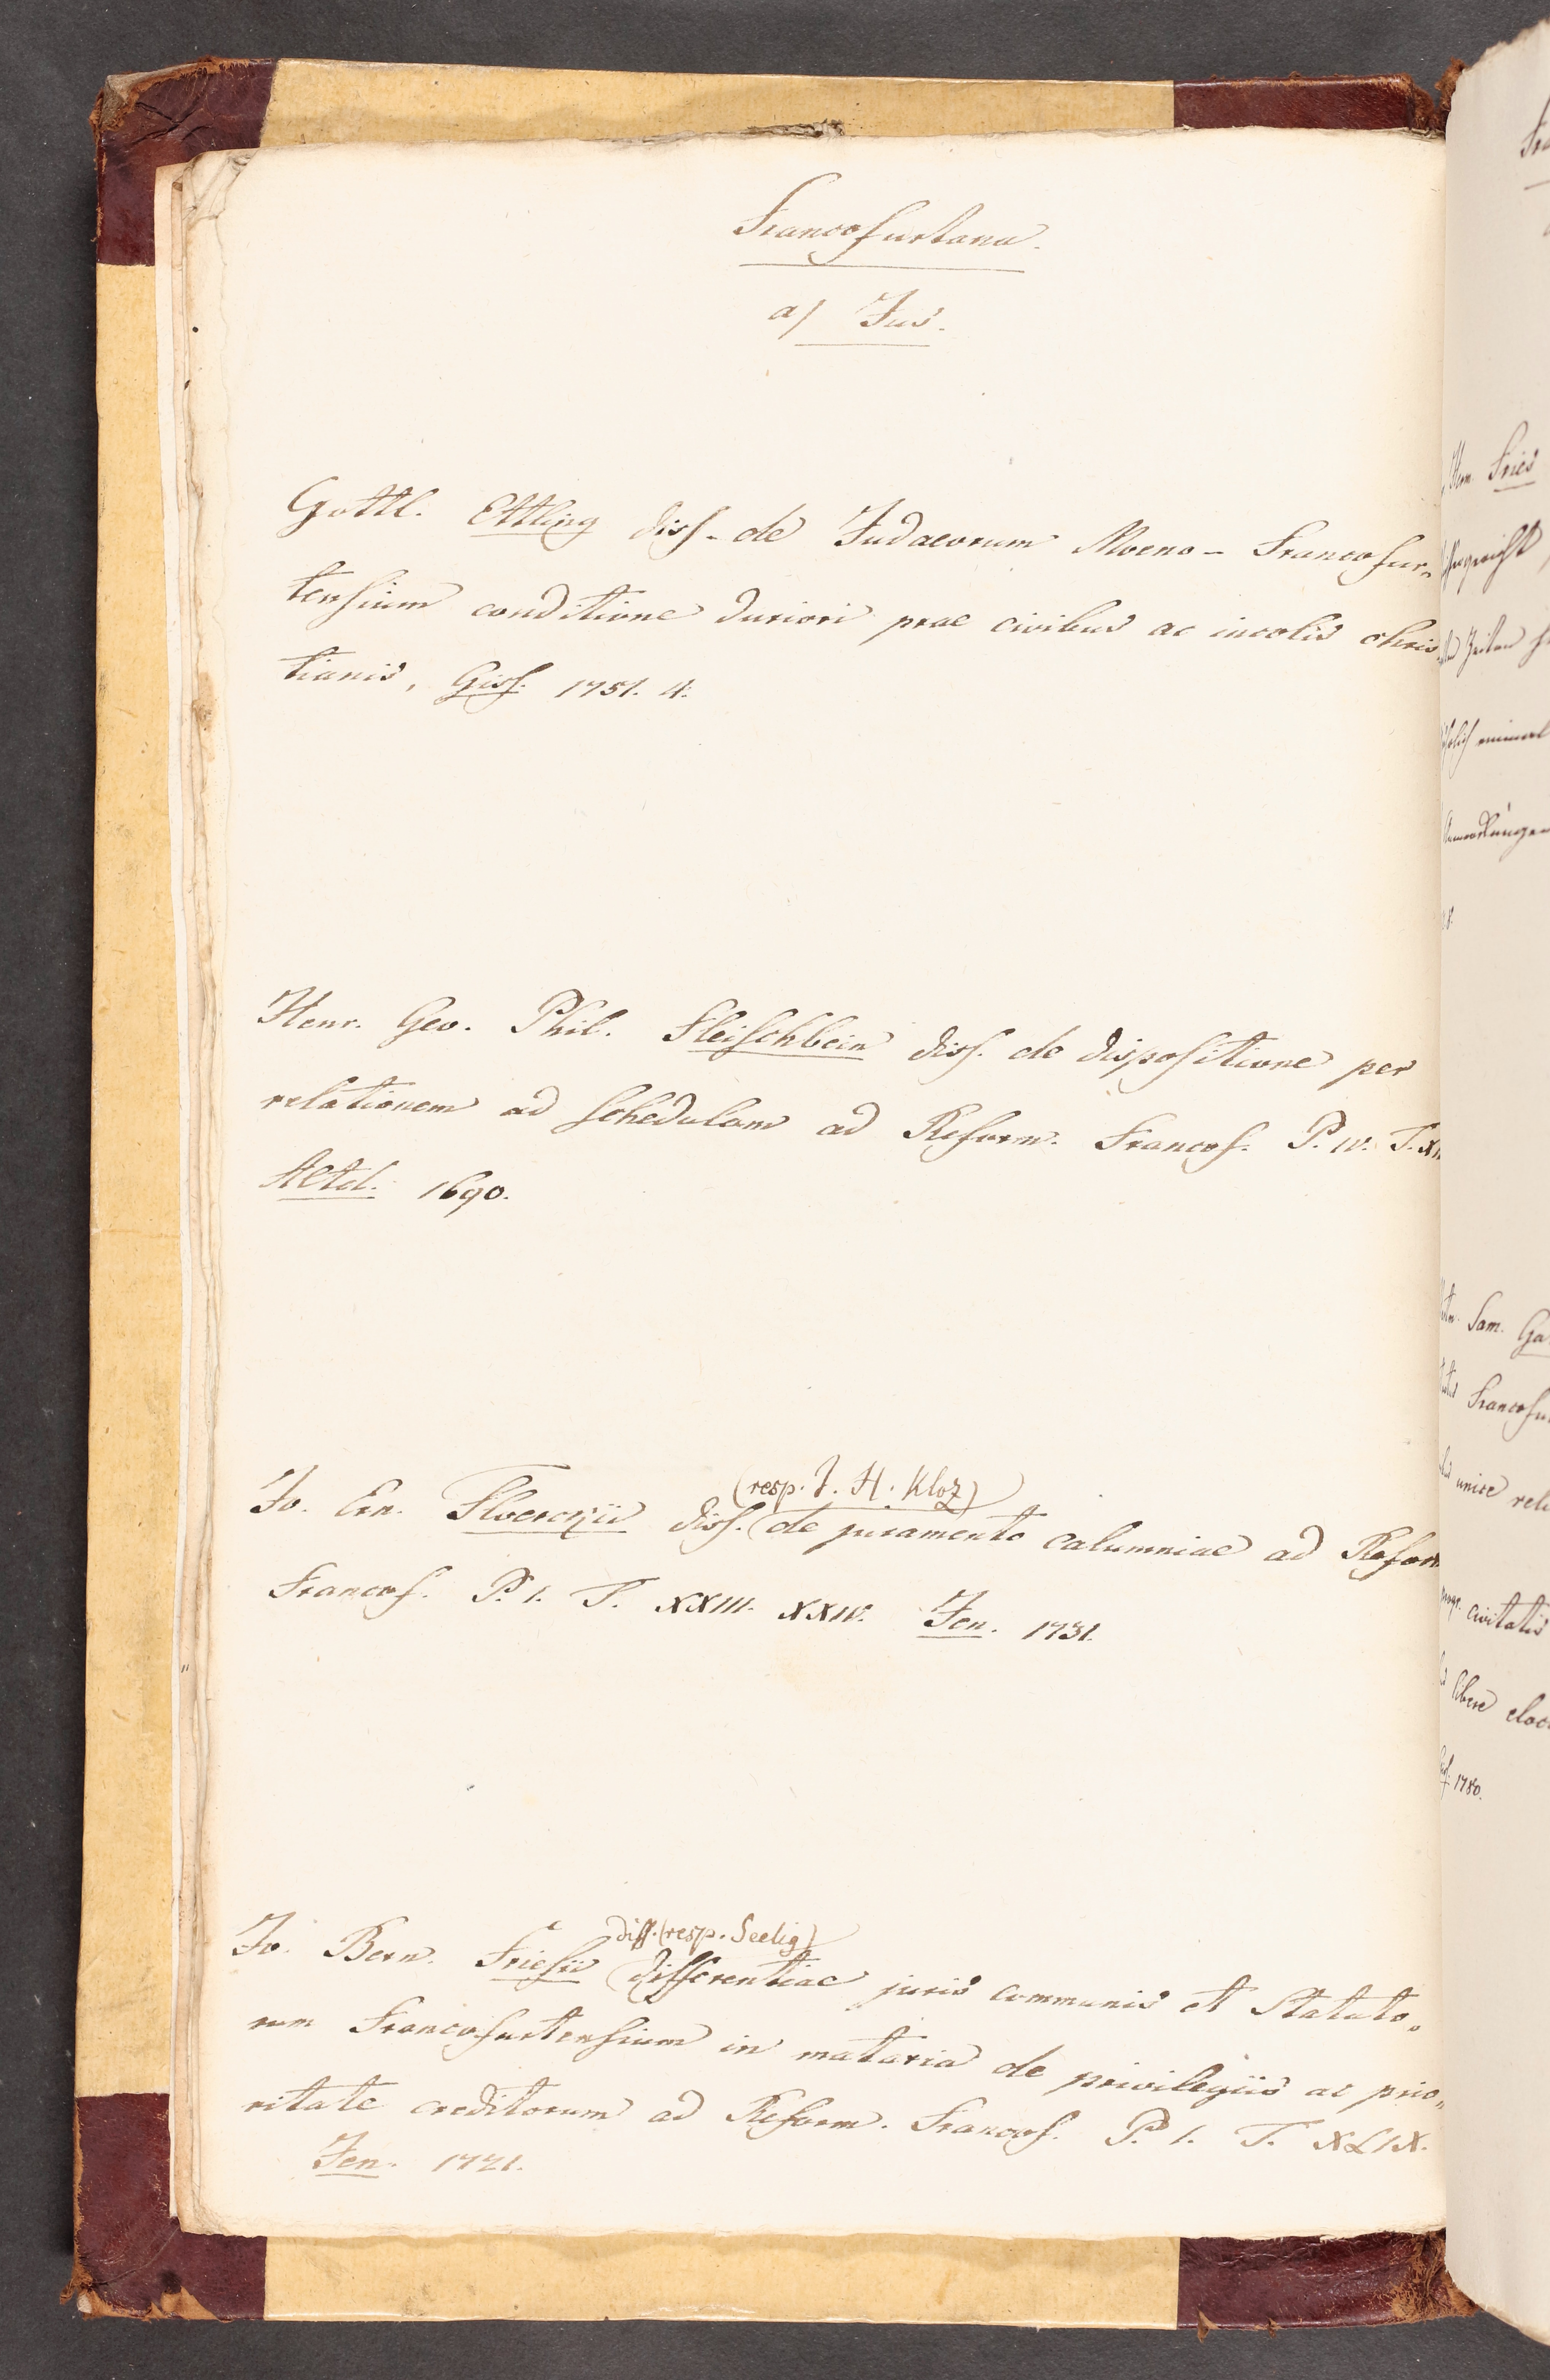 Francofurtana.
a) Jus.
Gottl. Ettling diss. de Judaeorum Moeno-Francofur-
tensium conditione duriori prae civibus ac incolis chris
tianis, Giss. 1751. 4.
Henr. Geo. Phil. Fleischbein diss. de dispositione per
relationem ad schedulam ad Reform. Francof. P. IV. T.
Altd. 1690.
(resp. J. H. Kloz)
Jo. Ern. Floerckii diss. (de juramento calumniae ad Reform
Francof. P. I. T. XXIII. XXIV. Jen. 1731.
diss. (resp. Seelig)
Jo. Bern. Friesii (differentiae juris communis et Statuto-
rum Francofurtensium in materia de privilegiis ac prio-
ritate creditorum ad Reform. Francof. P. I. T. XLIX.
Jen. 1721.
Fries
einmal
Sam. Ga
Francofu
unice
civitatis
libere
1780.